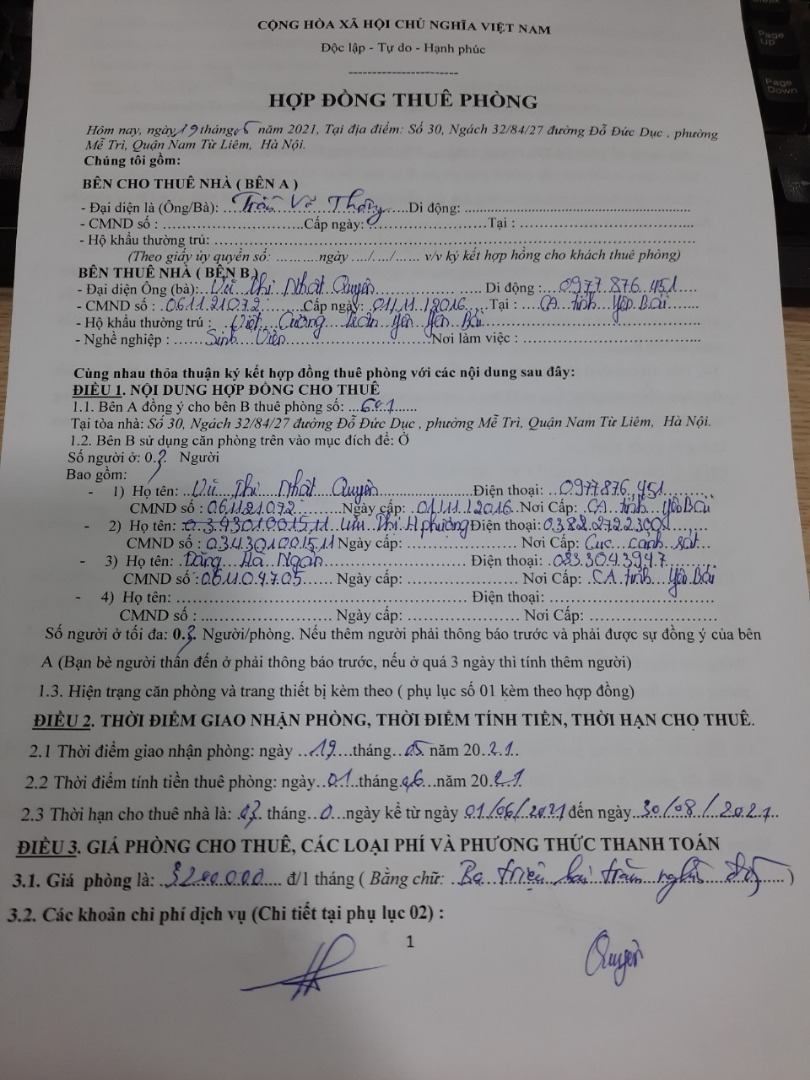 CỘNG HÒA XÃ HỘI CHỦ NGHĨA VIỆT NAM
Độc lập - Tự do - Hạnh phúc
-----------------------
HỢP ĐỒNG THUÊ PHÒNG
Hôm nay, ngày 19 tháng 05 năm 2021, Tại địa điểm: Số 30, Ngách 32/84/27 đường Đỗ Đức Dục , phường
Mễ Trì, Quận Nam Từ Liêm, Hà Nội.
Chúng tôi gồm:
BÊN CHO THUÊ NHÀ ( BÊN A )
- Đại diện là (Ông/Bà): Trần Võ Di động:
- CMND số : Cấp ngày: Tại :
- Hộ khẩu thường trú:
(Theo giấy ủy quyền số: ngày ..../..../...... v/v ký kết hợp hồng cho khách thuê phòng)
BÊN THUÊ NHÀ ( BÊN B)
- Đại diện Ông (bà): Vũ Thị Nhật Quyên Di động : 0977.876.451
- CMND số : 061121072 Cấp ngày: 01/11/2016 Tại : CA tỉnh Yên Bái
- Hộ khẩu thường trú : Việt Cường Trấn Yên Yên Bái
- Nghề nghiệp : Sinh Viên Nơi làm việc :
Cùng nhau thỏa thuận ký kết hợp đồng thuê phòng với các nội dung sau đây:
ĐIỀU 1. NỘI DUNG HỢP ĐỒNG CHO THUÊ
1.1. Bên A đồng ý cho bên B thuê phòng số: 601
Tại tòa nhà: Số 30, Ngách 32/84/27 đường Đỗ Đức Dục , phường Mễ Trì, Quận Nam Từ Liêm, Hà Nội.
1.2. Bên B sử dụng căn phòng trên vào mục đích để: Ở
Số người ở: 0.3 Người
Bao gồm:
- 1) Họ tên: Vũ Thị Nhật Quyên Điện thoại: 0977876.451
CMND số : 061121072 Ngày cấp: 01/11/2016 Nơi Cấp: CA tỉnh Yên Bái
- 2) Họ tên: 034301001511 Thị H phương Điện thoại: 0382272230
CMND số : 034301001511 Ngày cấp: Nơi Cấp: Cục cảnh sát
- 3) Họ tên: Đặng Hà Ngân Điện thoại: 0333043947
CMND số : 061104705 Ngày cấp: Nơi Cấp: CA tỉnh Yên Bái
- 4) Họ tên: Điện thoại:
CMND số : Ngày cấp: Nơi Cấp:
Số người ở tối đa: 0.3 Người/phòng. Nếu thêm người phải thông báo trước và phải được sự đồng ý của bên
A (Bạn bè người thân đến ở phải thông báo trước, nếu ở quá 3 ngày thì tính thêm người)
1.3. Hiện trạng căn phòng và trang thiết bị kèm theo ( phụ lục số 01 kèm theo hợp đồng)
ĐIỀU 2. THỜI ĐIỂM GIAO NHẬN PHÒNG, THỜI ĐIỂM TÍNH TIỀN, THỜI HẠN CHO THUÊ.
2.1 Thời điểm giao nhận phòng: ngày 19 tháng 05 năm 2021
2.2 Thời điểm tính tiền thuê phòng: ngày 01 tháng 06 năm 2021
2.3 Thời hạn cho thuê nhà là: 03 tháng 0 ngày kể từ ngày 01/06/2021 đến ngày 30/08/2021
ĐIỀU 3. GIÁ PHÒNG CHO THUÊ, CÁC LOẠI PHÍ VÀ PHƯƠNG THỨC THANH TOÁN
3.1. Giá phòng là: 3200.000 đ/1 tháng ( Bằng chữ: Ba triệu hai trăm nghìn đồng )
3.2. Các khoản chi phí dịch vụ (Chi tiết tại phụ lục 02) :
1
Quyên
Page UP
Page Down